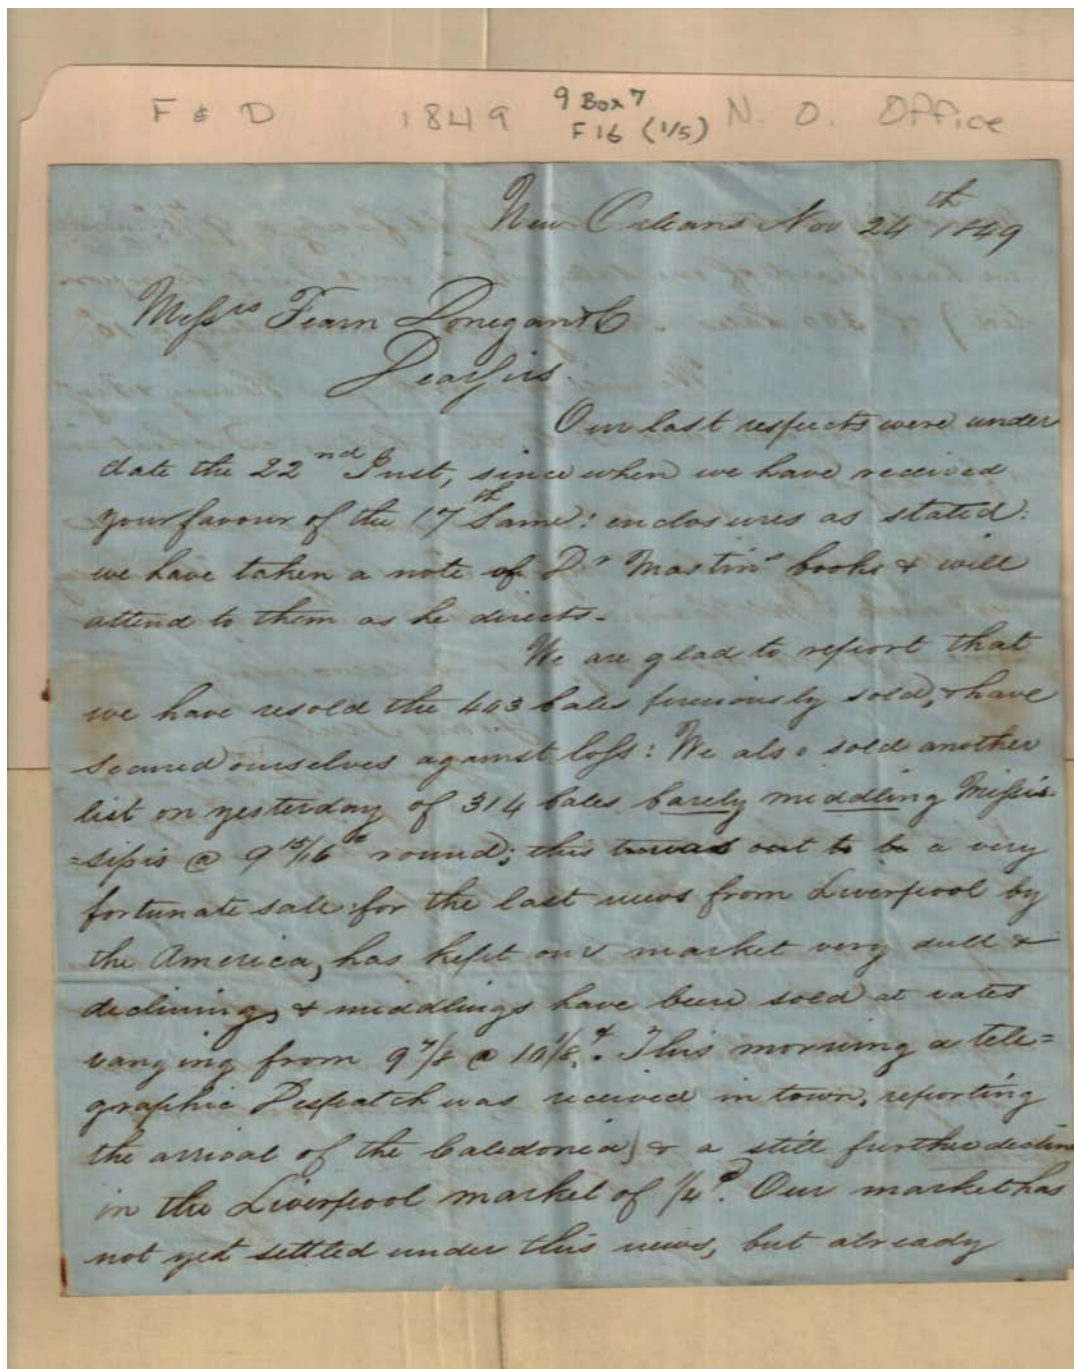 F & D 1849 9 Box 7 N. O. Office
F 16 (1/5)
New Orleans Nov 24th 1849
Messrs Fearn Donegan & C
Dear Sirs.
Our last respects were under
date the 22nd Inst, since when we have received
your favour of the 17th Same: enclosures as stated:
we have taken a note of Dr Martins books & will
attend to them as he directs.
We are glad to report that
we have resold the 443 bales previously sold, & have
secured ourselves against loss: We also sold another
list on yesterday of 314 bales barely middling Missis-
=sipis @ 9 15/16th round; this out to be a very
fortunate sale for the last news from Liverpool by
the America, has kept our market very dull &
declining, & middlings have been sold at rates
ranging from 9 7/8 @ 10 1/8. This morning a tele=
graphic Despatch was received in town, reporting
the arrival of the Caledonia, & a still further decline
in the Liverpool market of 1/4d. Our market has
not yet settled under this news, but already